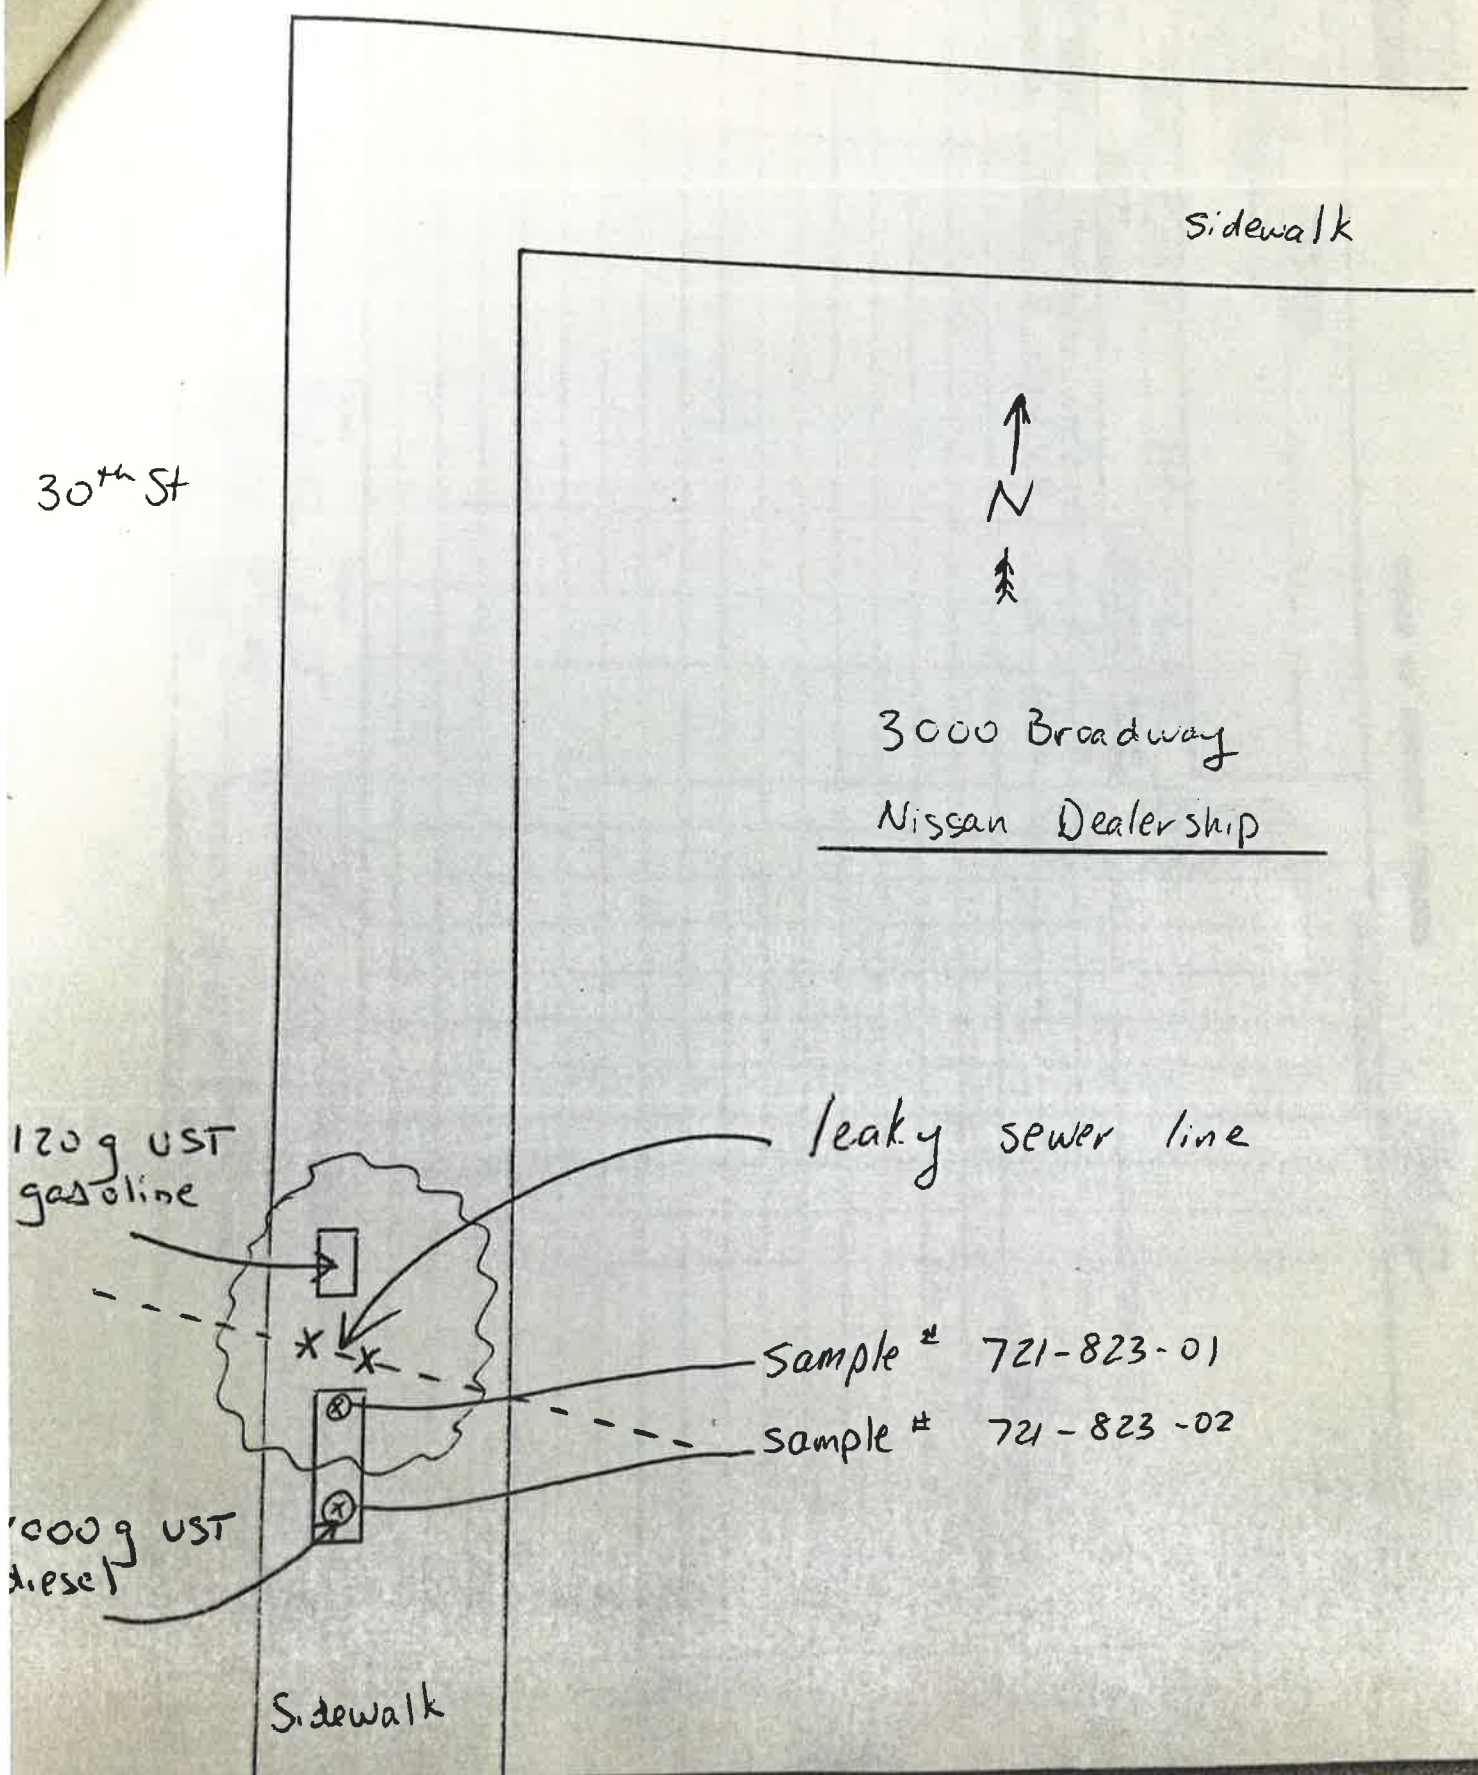 Sidewalk
30th St
N
3000 Broadway
Nissan Dealership
120 g UST
gasoline
leaky sewer line
sample # 721-823-01
sample # 721-823-02
000 g UST
diesel
Sidewalk